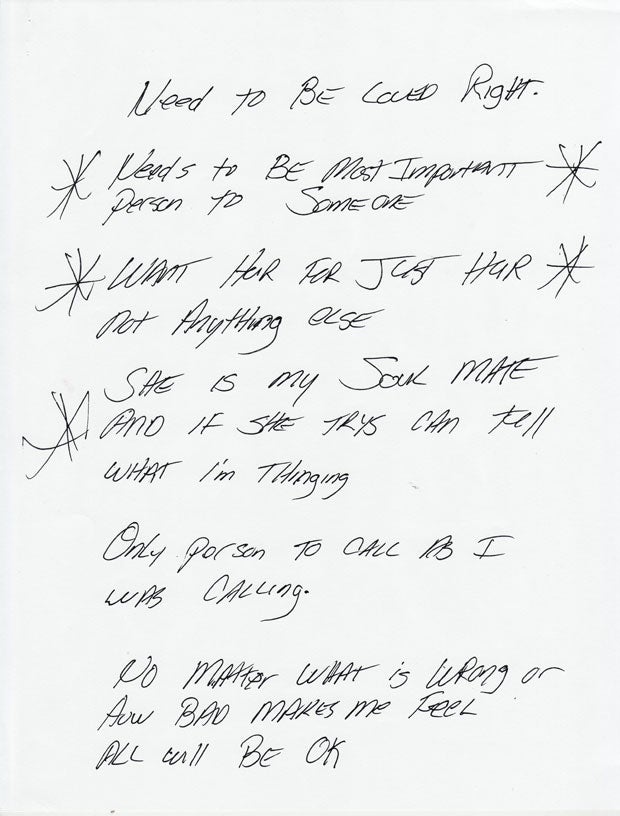 Need to BE LOVED Right.
Needs to BE Most Important
person to SomeONE
WANT Her For Just Her
not Anything ELSE
SHE is my Soul MATE
AND IF SHE TRYS CAN tell
WHAT i'm THinging
Only person TO CALL AS I
WAS CALLing.
No MAtter WHAT is WRong or
How BAD MAKES me FEEL
ALL will BE OK